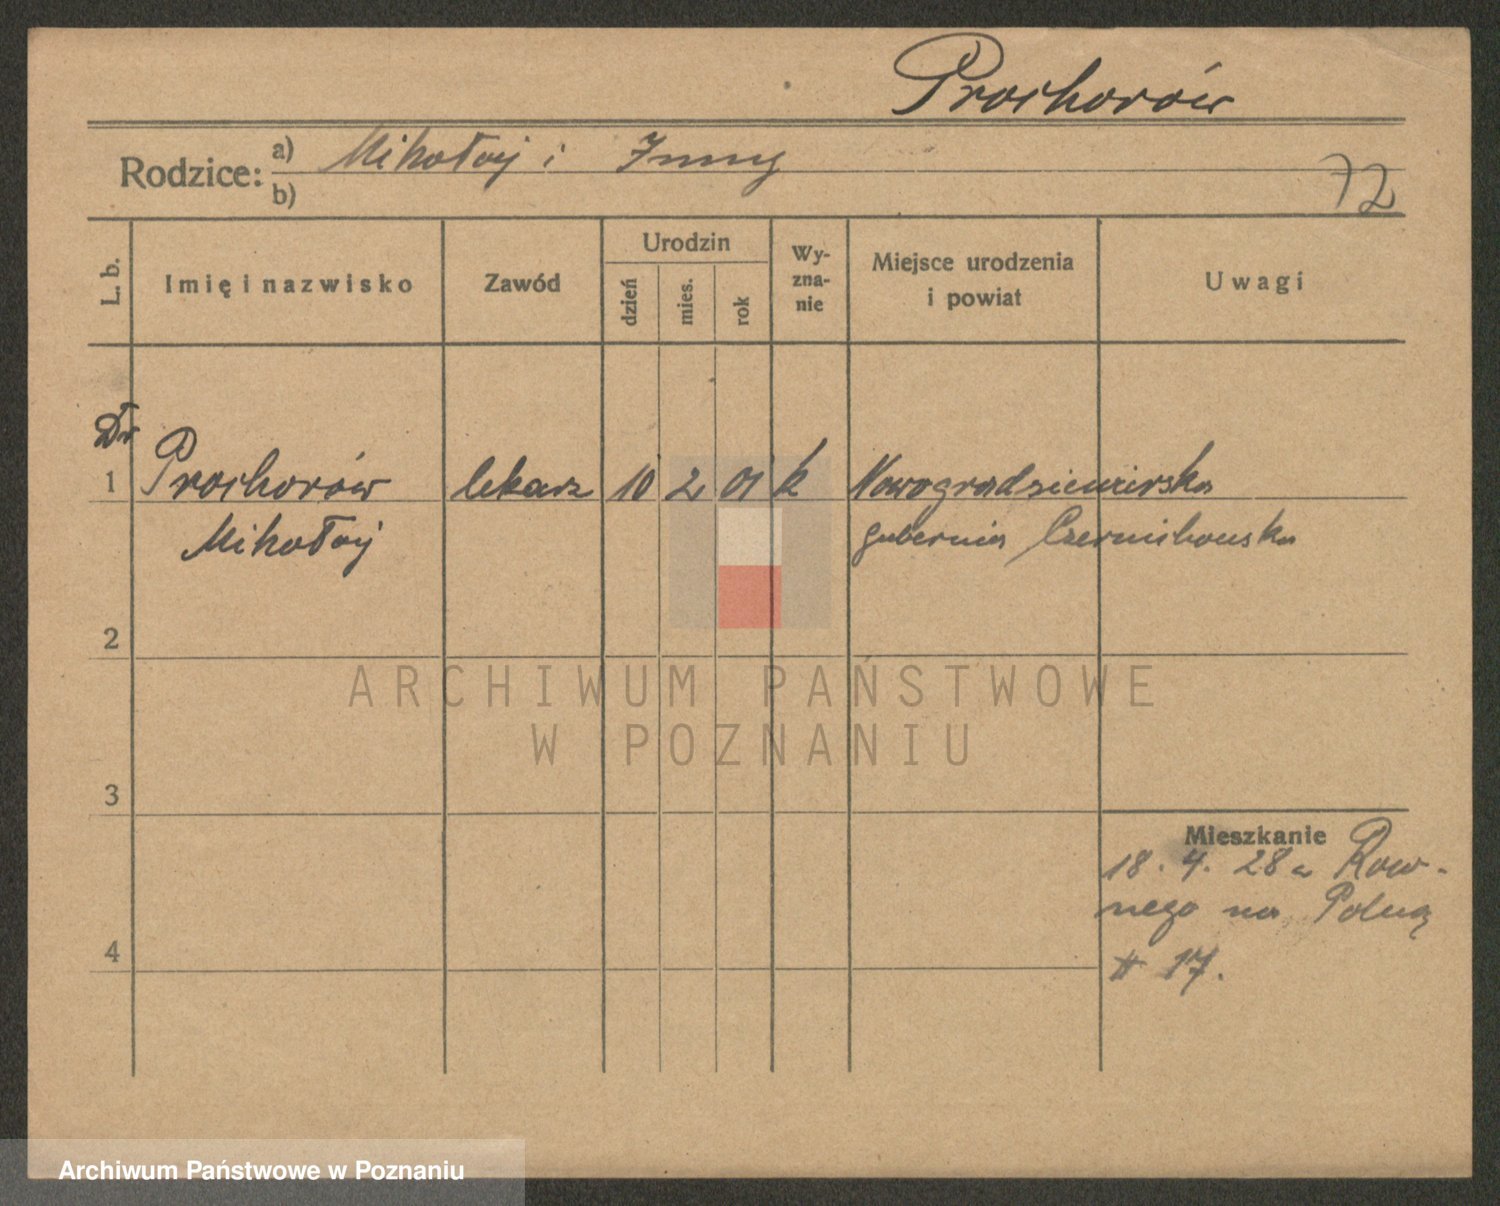 Prochorów
Rodzice: a) Mikołaj i Inny
b)
72
L. b. Imię i nazwisko Zawód Urodzin dzień mies. rok Wy-zna-nie Miejsce urodzenia i powiat Uwagi
Dr
1 Prochorów lekarz 10 2 01 k
Mikołaj gubernia Czernihowska
2
ARCHIWUM PAŃSTWOWE
W POZNANIU
3
Mieszkanie
18. 4. 28 z Rów-
nego na Polną
# 17.
4
Archiwum Państwowe w Poznaniu